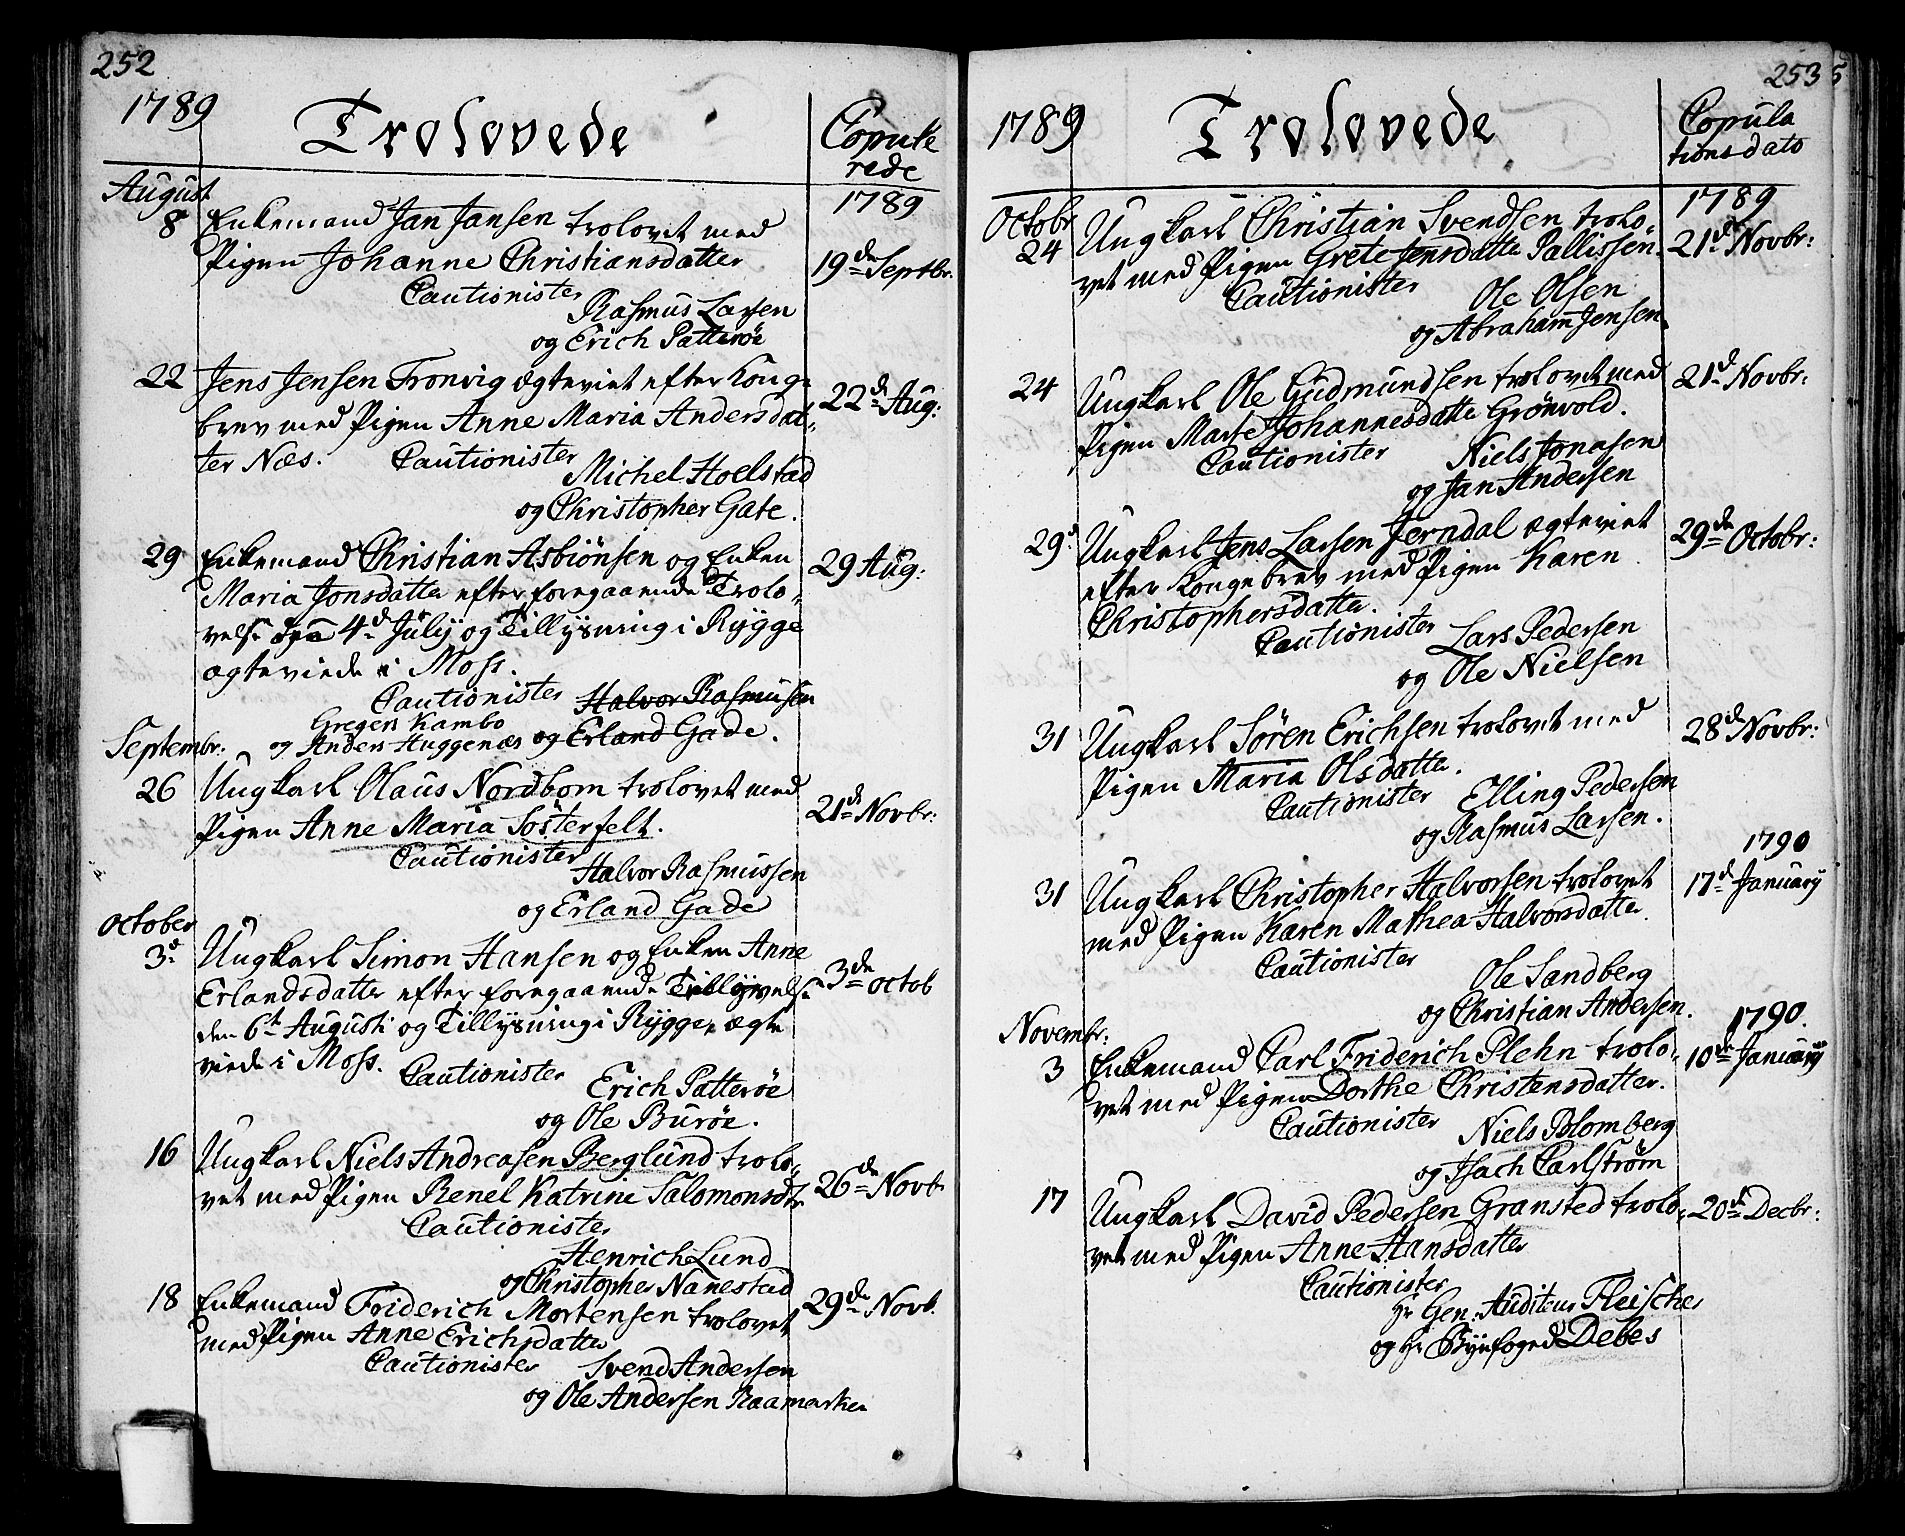 252
1789
Trolovede
Copule
rede
August
1789
8
Enkemand Jan Jansen trolovet med
Pigen Johanne Christiansdatter
19de Septbr.
Cautionister
Rasmus Larsen
og Erich Patterøe
22
Jens Jensen Tronvig ægteviet efter Konge
brev med Pigen Anne Maria Andersdat,
22d Aug:
ter Næs.
Cautionister
Michel Hoelstad
og Christopher Gate.
29
Enkemand Christian Asbiönsen og Enken
29 Aug:
Maria Jonsdatter efter foregaaende Trolo,
velse 4d July og Tillysning i Rygge
ægteviede i Moss.
Cautionister
Halvor Rasmussen
Gregers Kambo
og Anders Huggenæs
og Erland Gade.
Septembr:
26
Ungkarl Olaus Nordbom trolovet med
21de Novbr:
Pigen Anne Maria Sösterfelt.
Cautionister
Halvor Rasmussen
og Erland Gade
October
3d
Ungkarl Simon Hansen og Enken Anne
Erlandsdatter efter foregaaende velse
3de octob
den 6te Augusti og Tillysning i Rygge, ægte
viede i Moss.
Cautionister
Erich Patterøe
og Ole Burøe.
16
Ungkarl Niels Andreasen Berglund trolo,
vet med Pigen Renel Katrine Salomonsdtr
26de Novb
Cautionister
Henrich Lund
og Christopher Nanestad
18
Enkemand Friderich Mortensen trolovet
29de Novb.
med Pigen Anne Erichsdatter
Cautionister
Svend Andersen
og Ole Andersen Raamarken
253
5
1789
Trolovede
Copula
tionsdato
Octobr
1789
24
Ungkarl Christian Svendsen trolo,
21d Novbr:
vet med Pigen Grete Jensdatter Pallissen.
Cautionister
Ole Olsen
og Abraham Jensen
24
Ungkarl Ole Gudmundsen trolovet med
21d Novbr:
Pigen Marte Johannesdatter Grönvold.
Cautionister
Niels Jonasen
og Jan Andersen
29d
Ungkarl Jens Larsen Jerndal ægteviet
29de Octobr:
efter Kongebrev med Pigen Karen
Christophersdatter.
Cautionister
Lars Pedersen
og Ole Nielsen
31
Ungkarl Søren Erichsen trolovet med
28d Novbr:
Pigen Maria Olsdatter.
Cautionister
Elling Pedersen
og Rasmus Larsen.
1790
31
Ungkarl Christopher Halvorsen trolovet
17d January
med Pigen Karen Mathea Halvorsdatter.
Cautionister
Ole Sandberg
og Christian Andersen.
Novembr:
1790.
3
Enkemand Carl Friderich Plehn trolo,
10de January
vet med Pigen Dorthe Christensdatter.
Cautionister
Niels Blomberg
og Isach Carlstrøm
17
Ungkarl David Pedersen Gransted trolo,
20de Decbr:
vet med Pigen Anne Hansdatter
Cautionister
Hr Gen: Auditeur Fleischer
og Hr Byefoged Debes